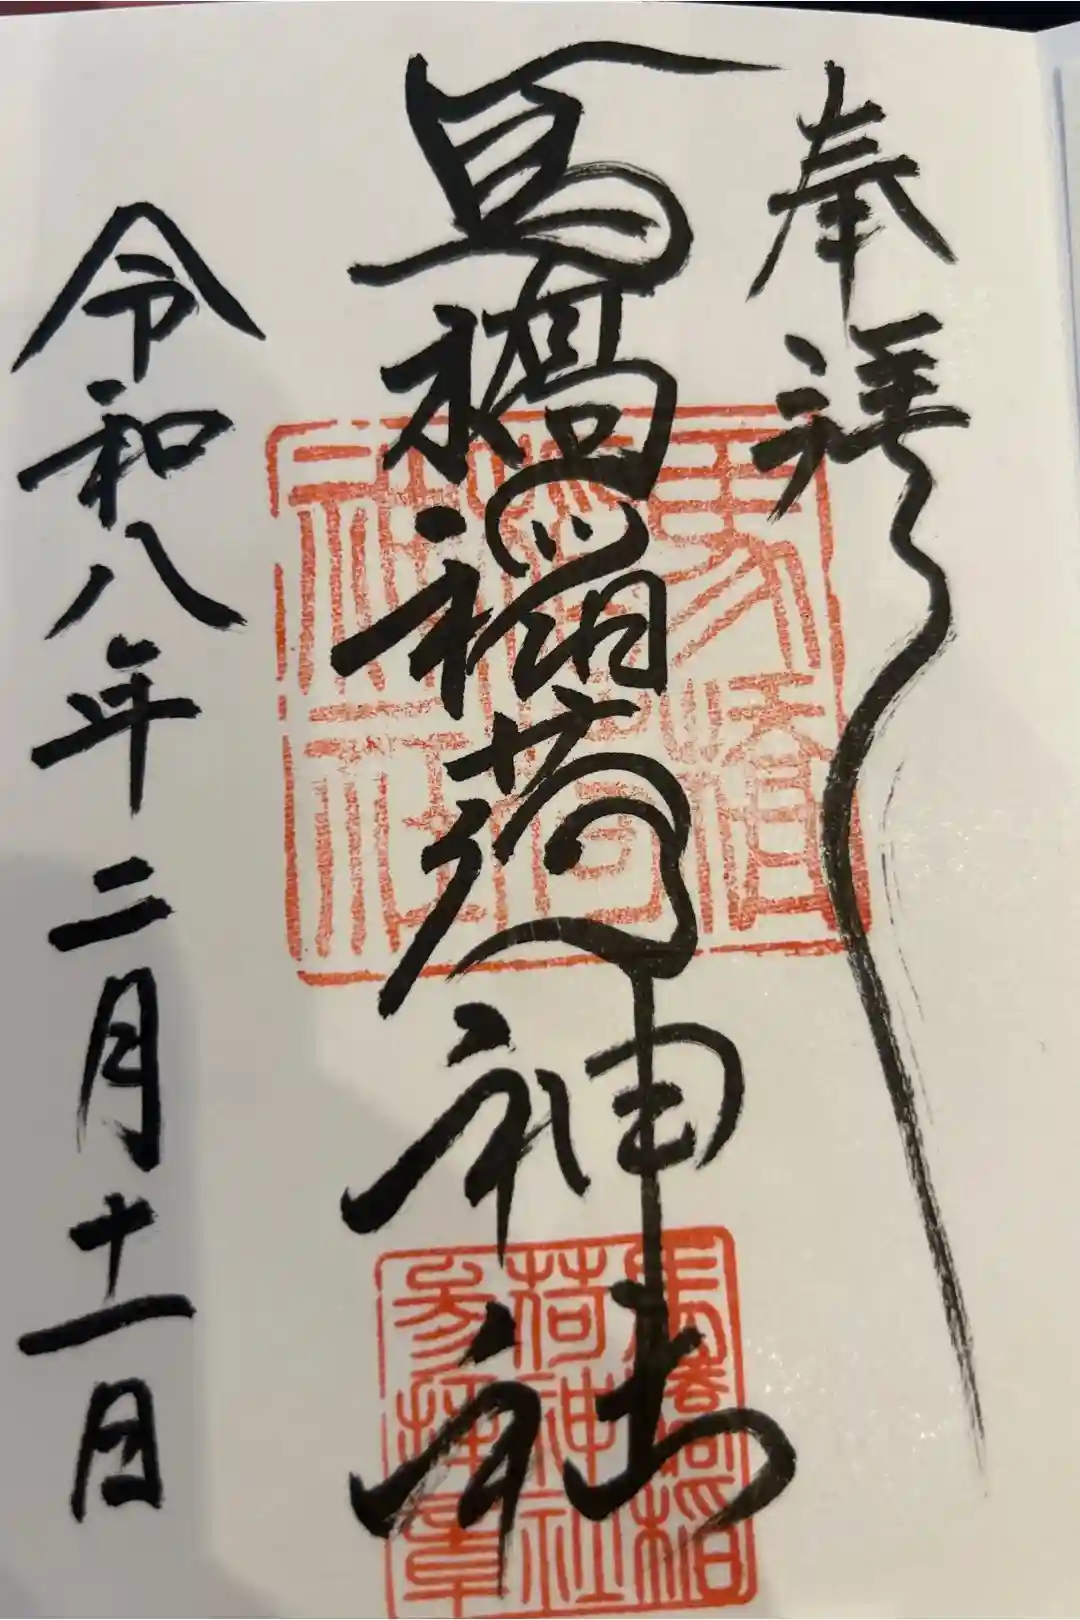 奉拝
馬橋稲荷神社
令和八年二月十一日
馬橋
稲荷
神社
馬橋稲
荷神社
参拝章